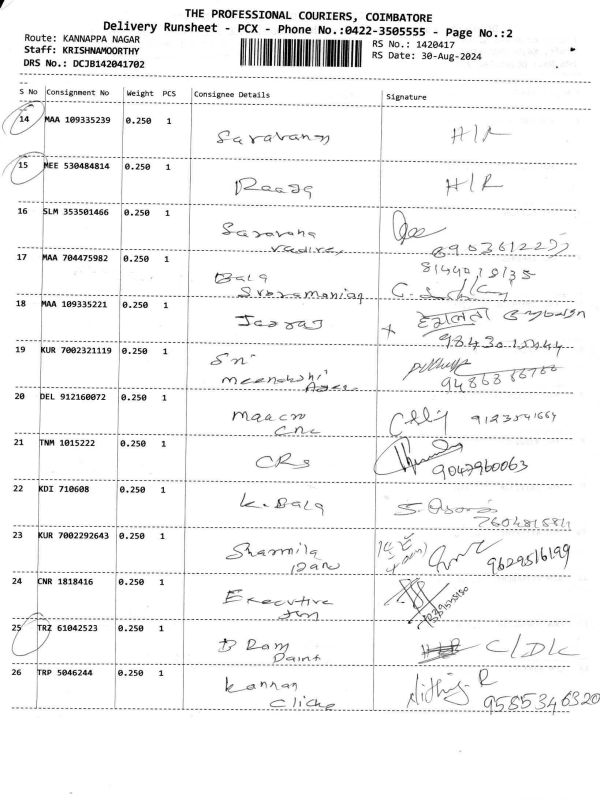 THE PROFESSIONAL COURIERS, COIMBATORE
Delivery Runsheet - PCX - Phone No.:0422-3505555 - Page No.:2
Route: KANNAPPA NAGAR
RS No.: 1420417
Staff: KRISHNAMOORTHY
RS Date: 30-Aug-2024
DRS No.: DCJB142041702
S No Consignment No Weight PCS Consignee Details Signature
14 MAA 109335239 0.250 1
Saravanan H/R
15 MEE 530484814 0.250 1
Raaga H/R
16 SLM 353501466 0.250 1
Saravana
17 MAA 704475982 0.250 1
Bala
Subramanian
18 MAA 109335221 0.250 1
हेमलता
19 KUR 7002321119 0.250 1
Sri
Meenakshi
20 DEL 912160072 0.250 1
Maacro
CNC
21 TNM 1015222 0.250 1
CRS 9047960063
22 KDI 710608 0.250 1
K. Bala
23 KUR 7002292643 0.250 1
Sharmila
Banu 9629516199
24 CNR 1818416 0.250 1
Executive
25 TRZ 61042523 0.250 1
B Ram C/D/C
Paint
26 TRP 5046244 0.250 1
Kannan Nithij. R
9585346320